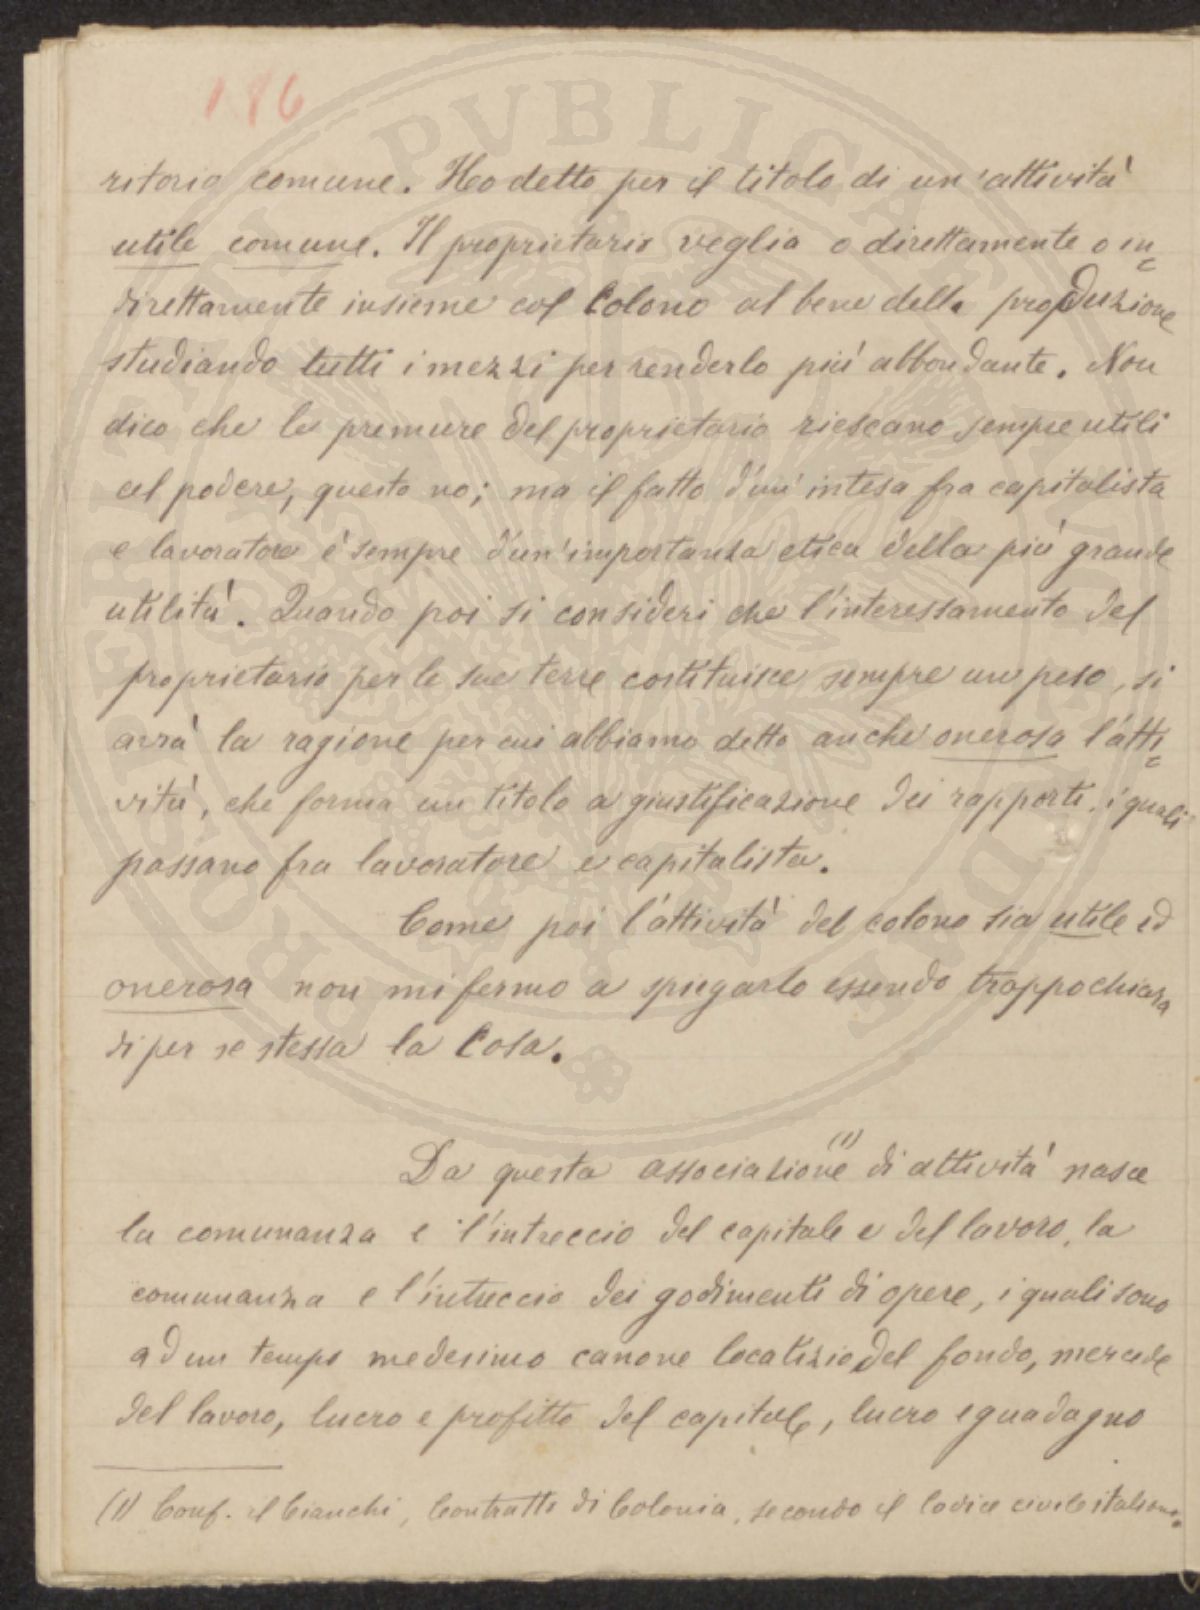 186
ritorio comune. Ho detto per il titolo di un'attività
utile comune. Il proprietario veglia o direttamente o in=
direttamente insieme col Colono al bene della produzione
studiando tutti i mezzi per renderlo più abbondante. Non
dico che le premure del proprietario riescano sempre utili
al podere, questo no; ma il fatto d'un'intesa fra capitalista
e lavoratore è sempre d'un'importanza etica della più grande
utilità. Quando poi si consideri che l'interessamento del
proprietario per le sue terre costituisce sempre un peso, si
avrà la ragione per cui abbiamo detto anche onerosa l'atti=
vità, che forma un titolo a giustificazione dei rapporti, i quali
passano fra lavoratore e capitalista.
Come poi l'attività del colono sia utile ed
onerosa non mi fermo a spiegarlo essendo troppo chiara
di per se stessa la Cosa.
Da questa associazione (1) di attività nasce
la comunanza e l'intreccio del capitale e del lavoro, la
comunanza e l'intreccio dei godimenti di opere, i quali sono
ad un tempo medesimo canone locatizio del fondo, mercede
del lavoro, lucro e profitto del capitale, lucro e guadagno
(1) Conf. il Bianchi, Contratto di Colonia, secondo il Codice civile italiano.
PUBLICAE
PROSPERITATI